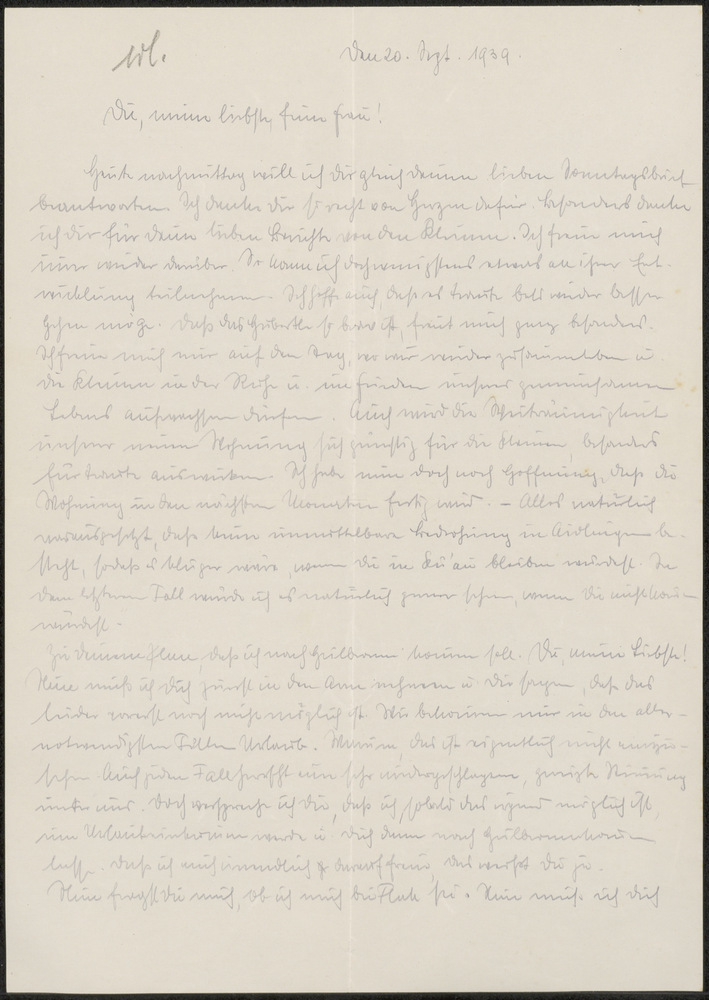 Den 20. Sept. 1939.
Du, meine liebste, feine Frau!
Heute nachmittag will ich Dir gleich Deinen lieben Sonntagsbrief
beantworten. Ich danke Dir so recht von Herzen dafür. Besonders danke
ich Dir für Deine lieben Berichte von den Kleinen. Ich freue mich
immer wieder darüber. So kann ich doch wenigstens etwas an ihrer Ent-
wicklung teilnehmen. Ich hoffe auch daß es Traute bald wieder besser
gehen möge. Daß das so brav ist, freut mich ganz besonders.
Ich freue mich nur auf den Tag, wo wir wieder zusammen leben u.
die Kleinen in der Ruhe u. im Frieden unseres gemeinsamen
Lebens aufwachsen dürfen. Auch wird die Weiträumigkeit
unserer neuen Wohnung sich günstig für die Kleinen, besonders
für Traute auswirken. Ich habe nun doch noch Hoffnung, daß die
Wohnung in den nächsten Monaten fertig wird. – Alles natürlich
vorausgesetzt, daß keine unmittelbare Bedrohung in Aidlingen be-
steht, sodaß es klüger wäre, wenn Du in bleiben würdest. In
dem letzteren Fall würde ich es natürlich gerner sehen, wenn Du nicht kommen
würdest.
Zu Deinem Plan, daß ich nach Heilbronn kommen soll. Du, meine Liebste!
Nun muß ich Dich zuerst in den Arm nehmen u. Dir sagen, daß das
leider vorerst noch nicht möglich ist. Wir bekommen nur in den aller-
notwendigsten Fällen Urlaub. Warum, das ist eigentlich nicht einzu-
sehen. Auf jeden Fall herrscht eine sehr niedergeschlagene, gereizte Stimmung
unter uns. Doch verspreche ich Dir, daß ich, sobald das irgend möglich ist,
um Urlaub einkommen werde u. Dich dann nach Heilbronn kommen
lasse. Daß ich mich unendlich darauf freue, das weißt Du ja.
Nun fragst Du mich, ob ich mich bei Flak sei. Nun muß ich Dich